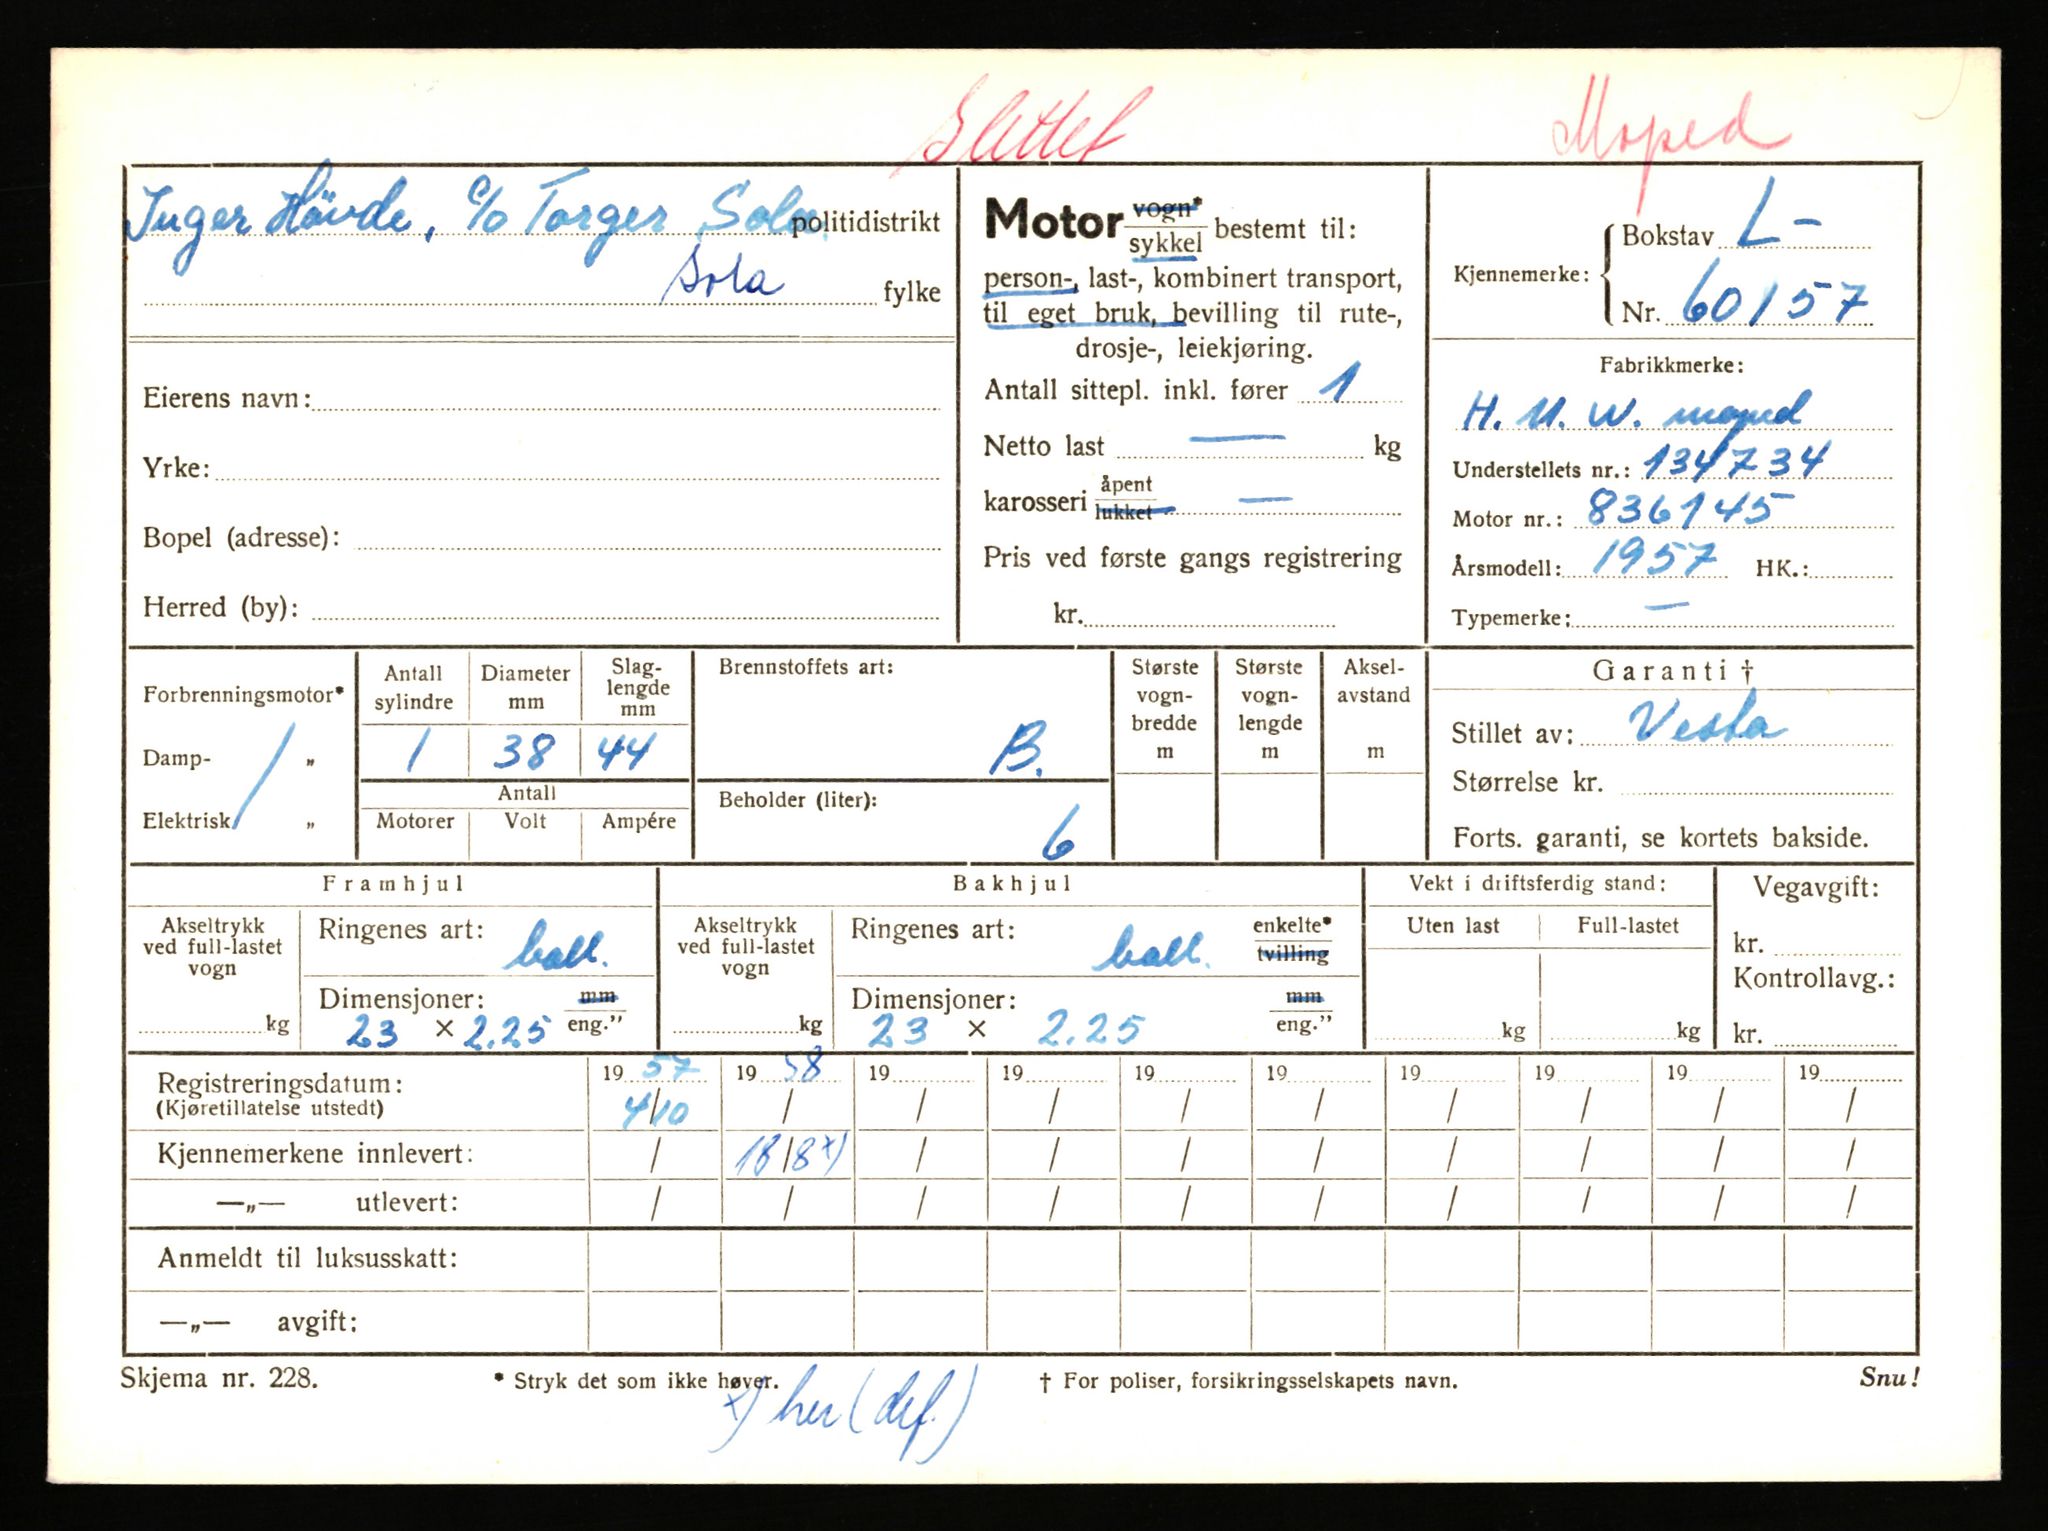 Slettet
Moped
Inger Hövde, c/o Torger Sola politidistrikt
Sola fylke
Eierens navn:
Yrke:
Bopel (adresse):
Herred (by):
Motor vogn* sykkel bestemt til:
person-, last-, kombinert transport,
til eget bruk, bevilling til rute-,
drosje-, leiekjøring.
Antall sittepl. inkl. fører 1
Netto last — kg
karosseri åpent lukket —
Pris ved første gangs registrering
kr.
Kjennemerke: Bokstav L-
Nr. 60157
Fabrikkmerke:
H. M. W. moped
Understellets nr.: 134734
Motor nr.: 836145
Årsmodell: 1957 HK.:
Typemerke: —
Forbrenningsmotor*
Damp- „
Elektrisk „
Antall sylindre
Diameter mm
Slag-lengde mm
1 38 44
Antall
Motorer Volt Ampére
Brennstoffets art:
B.
Beholder (liter):
6
Største vogn-bredde m
Største vogn-lengde m
Aksel-avstand m
Garanti †
Stillet av: Vesta
Størrelse kr.
Forts. garanti, se kortets bakside.
Framhjul
Akseltrykk ved full-lastet vogn
kg
Ringenes art: ball.
Dimensjoner: mm
23 × 2.25 eng."
Bakhjul
Akseltrykk ved full-lastet vogn
kg
Ringenes art: ball. enkelte* tvilling
Dimensjoner: mm
23 × 2.25 eng."
Vekt i driftsferdig stand:
Uten last Full-lastet
kg kg
Vegavgift:
kr.
Kontrollavg.:
kr.
Registreringsdatum: 19 57 19 58 19 19 19 19 19 19 19 19
(Kjøretillatelse utstedt) 4/10 / / / / / / / / /
Kjennemerkene innlevert: / 18/8 x) / / / / / / / /
—„— utlevert: / / / / / / / / / /
Anmeldt til luksusskatt:
—„— avgift:
Skjema nr. 228. * Stryk det som ikke høver. † For poliser, forsikringsselskapets navn. Snu!
x) her (def.)